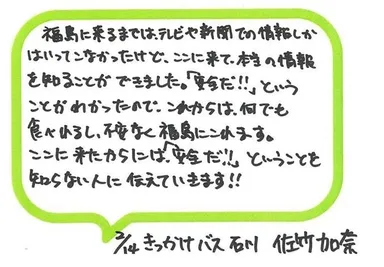 福島に来るまでは、テレビや新聞での情報しか
はいってこなかったけど、ここに来て、本当の情報
を知ることができました。「安全だ!!」という
ことがわかったので、これからは、何でも
食べれるし、不安なく福島にこれます。
ここに来たからには、「安全だ!!」ということを
知らない人に伝えていきます!!
2/14 きっかけバス石川 佐竹加奈